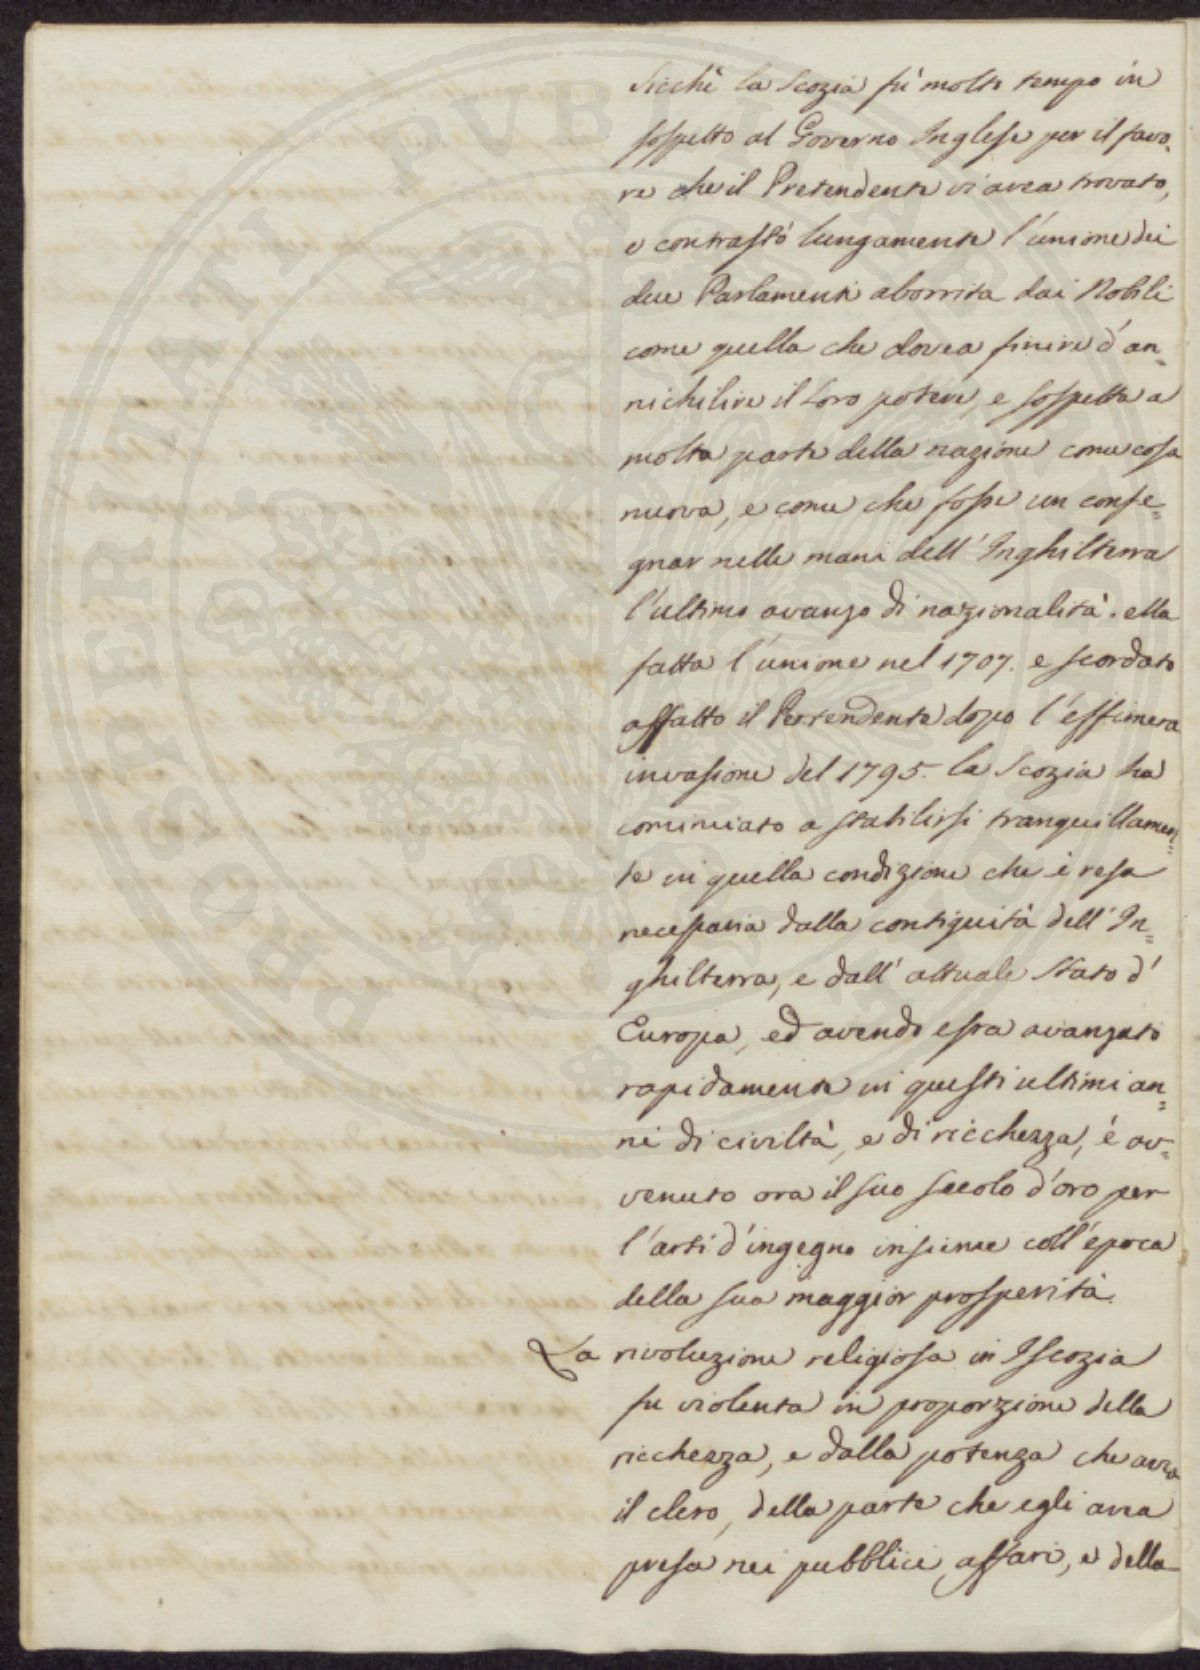 Sicchè la Scozia fù molto tempo in
sospetto al Governo Inglese per il favo=
re che il Pretendente vi avea trovato,
e contrastò lungamente l'unione dei
due Parlamenti aborrita dai Nobili
come quella che dovea finire d'an=
nichilire il loro potere, e sospetta a
molta parte della nazione come cosa
nuova, e come che fosse un conse=
gnar nelle mani dell'Inghilterra
l'ultimo avanzo di nazionalità. ella
fatta l'unione nel 1707. e scordato
affatto il Pertendente dopo l'effimera
invasione del 1795. la Scozia ha
cominciato a stabilirsi tranquillamen=
te in quella condizione che è resa
necessaria dalla contiguità dell'In=
ghilterra, e dall'attuale Stato d'
Europa, ed avendo essa avanzato
rapidamente in questi ultimi an=
ni di civiltà, e di ricchezza, è av=
venuto ora il suo secolo d'oro per
l'arti d'ingegno insieme coll'epoca
della sua maggior prosperità.
La rivoluzione religiosa in Iscozia
fu violenta in proporzione della
ricchezza, e dalla potenza che avea
il clero, della parte che egli avea
presa nei pubblici affari, e della
PROSPERITATI PUBLICAE